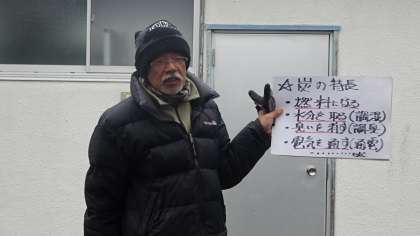 ☆炭の特長
・燃料になる
・水分を取る(調湿)
・臭いを消す(消臭)
・電気を通す(通電)